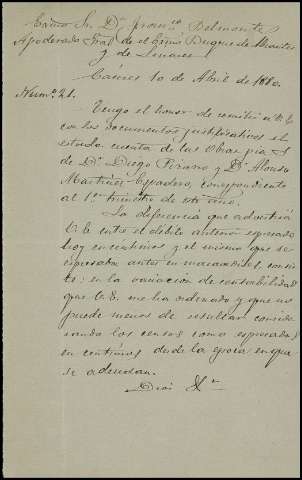 Excmo Sr. Dn. Franco. Delmonte
Apoderado Gral de el Excmo Duque de Abrantes
y de Linares
Cáceres 10 de Abril de 1880.
Num.o 21.
Tengo el honor de remitir a V. E.
con los documentos justificativos el
estado cuenta de las Obras pias
de Dn. Diego Pizarro y Dn. Alonso
Martinez Espadero, correspondiente
al 1er. trimestre de este año.
La diferencia que advertirá
V. E. entre el débito anterior espresado
hoy en centimos y el mismo que se
espresaba antes en maravedises, consis-
te en la variacion de contabilidad
que V. E. me ha ordenado y que no
puede menos de resultar conside-
rando los censos como espresados
en centimos desde la época en que
se adeudan.
Dios &a